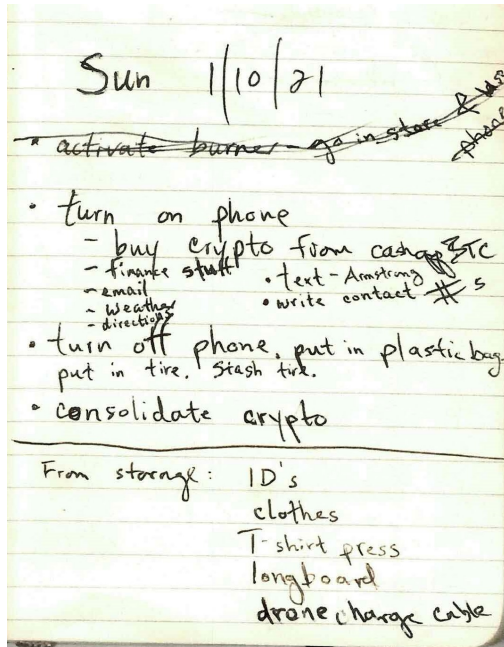 Sun 1/10/21
• activate burner - go in store
phone
• turn on phone
- buy crypto from cashapp BTC
- finance stuff • text - Armstrong
- email • write contact #s
- weather
- directions
• turn off phone, put in plastic bag
put in tire. Stash tire.
• consolidate crypto
From storage: ID's
clothes
T-shirt press
longboard
drone charge cable